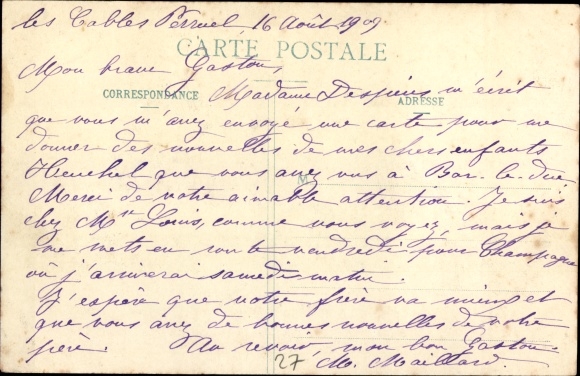 les Cables Perruel 16 Août 1909
CARTE POSTALE
Mon brave Gaston,
CORRESPONDANCE
ADRESSE
Madame Despiens m'écrit
que vous m'avez envoyé une carte pour me
donner des nouvelles de mes chers enfants
Henchel que vous avez vus à Bar-le-duc
Merci de votre aimable attention. Je suis
chez Mr Louis, comme vous voyez, mais je
me mets en route vendredi pour Champagne
où j'arriverai samedi matin.
J'espère que votre frère va mieux et
que vous avez de bonnes nouvelles de votre
père. Au revoir, mon bon Gaston.
27 M. Maillard.